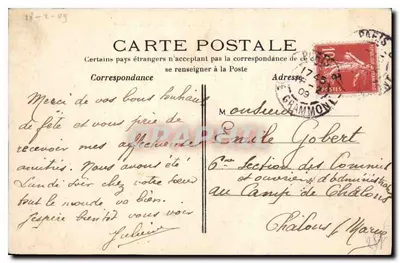 CARTE POSTALE
Certains pays étrangers n'acceptent pas la correspondance de
se renseigner à la Poste
Correspondance
Adresse
Merci de vos bons souhaits
de fête et vous prie de
recevoir mes affectueuses
amitiés. Nous avons été
Lundi soir chez votre sœur
tout le monde va bien.
J'espère bientôt vous voir
Julien
Monsieur
Emile Gobert
6eme Section des Commis
et ouvriers d'administration
au Camp de Châlons
Châlons s/ Marne
17 45
09
GRAMMONT
PARIS
10